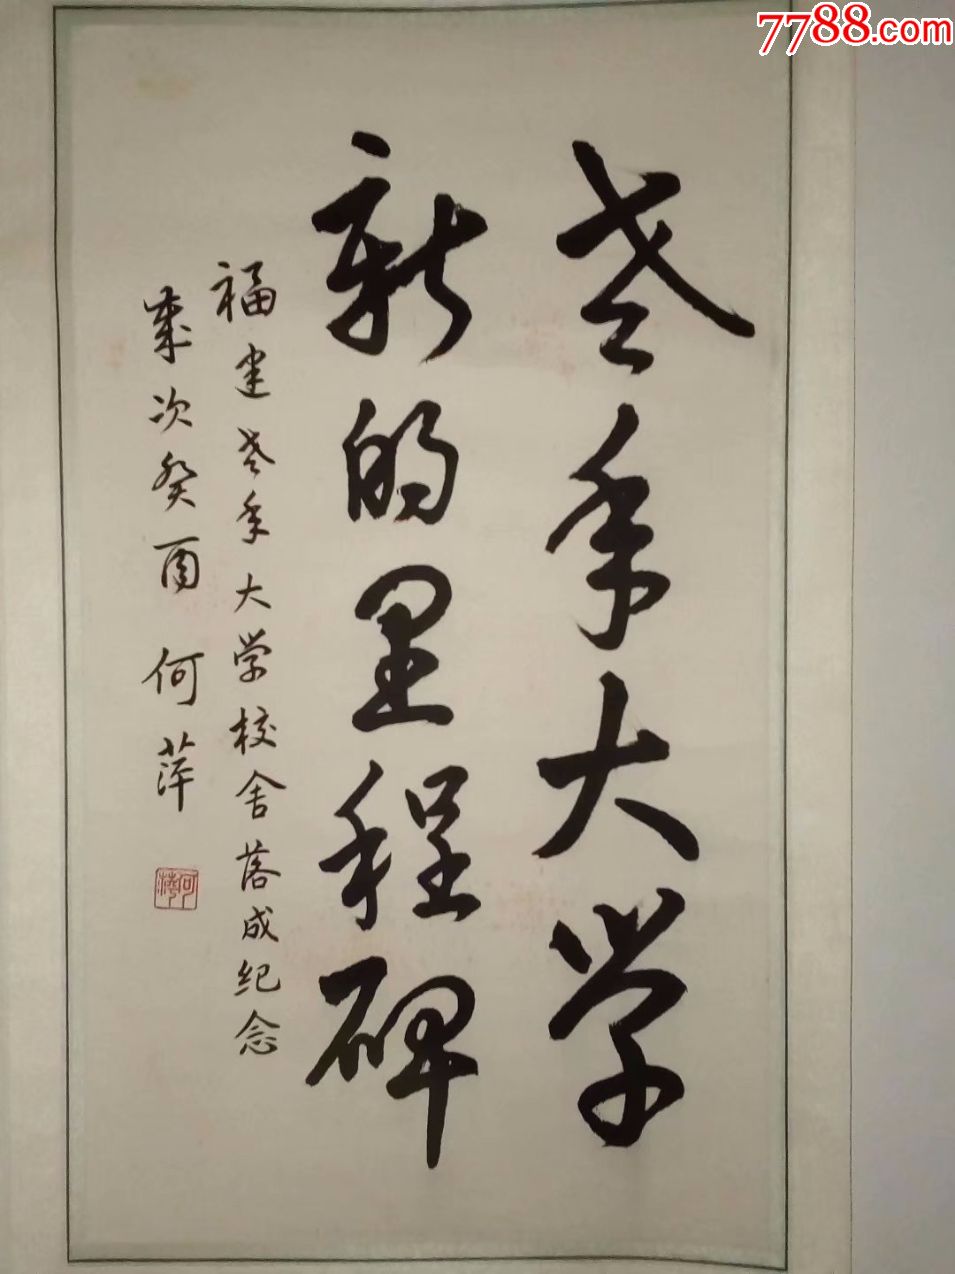 7788.com
老年大学
新的里程碑
福建老年大学校舍落成纪念
岁次癸酉 何萍